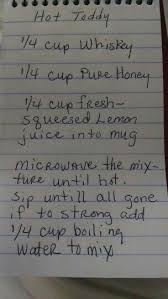 Hot Toddy
1/4 cup Whiskey
1/4 cup Pure Honey
1/4 cup fresh-
squeesed Lemon
juice into mug
microwave the mix-
ture until hot.
Sip untill all gone
if to strong add
1/4 cup boiling
water to mix